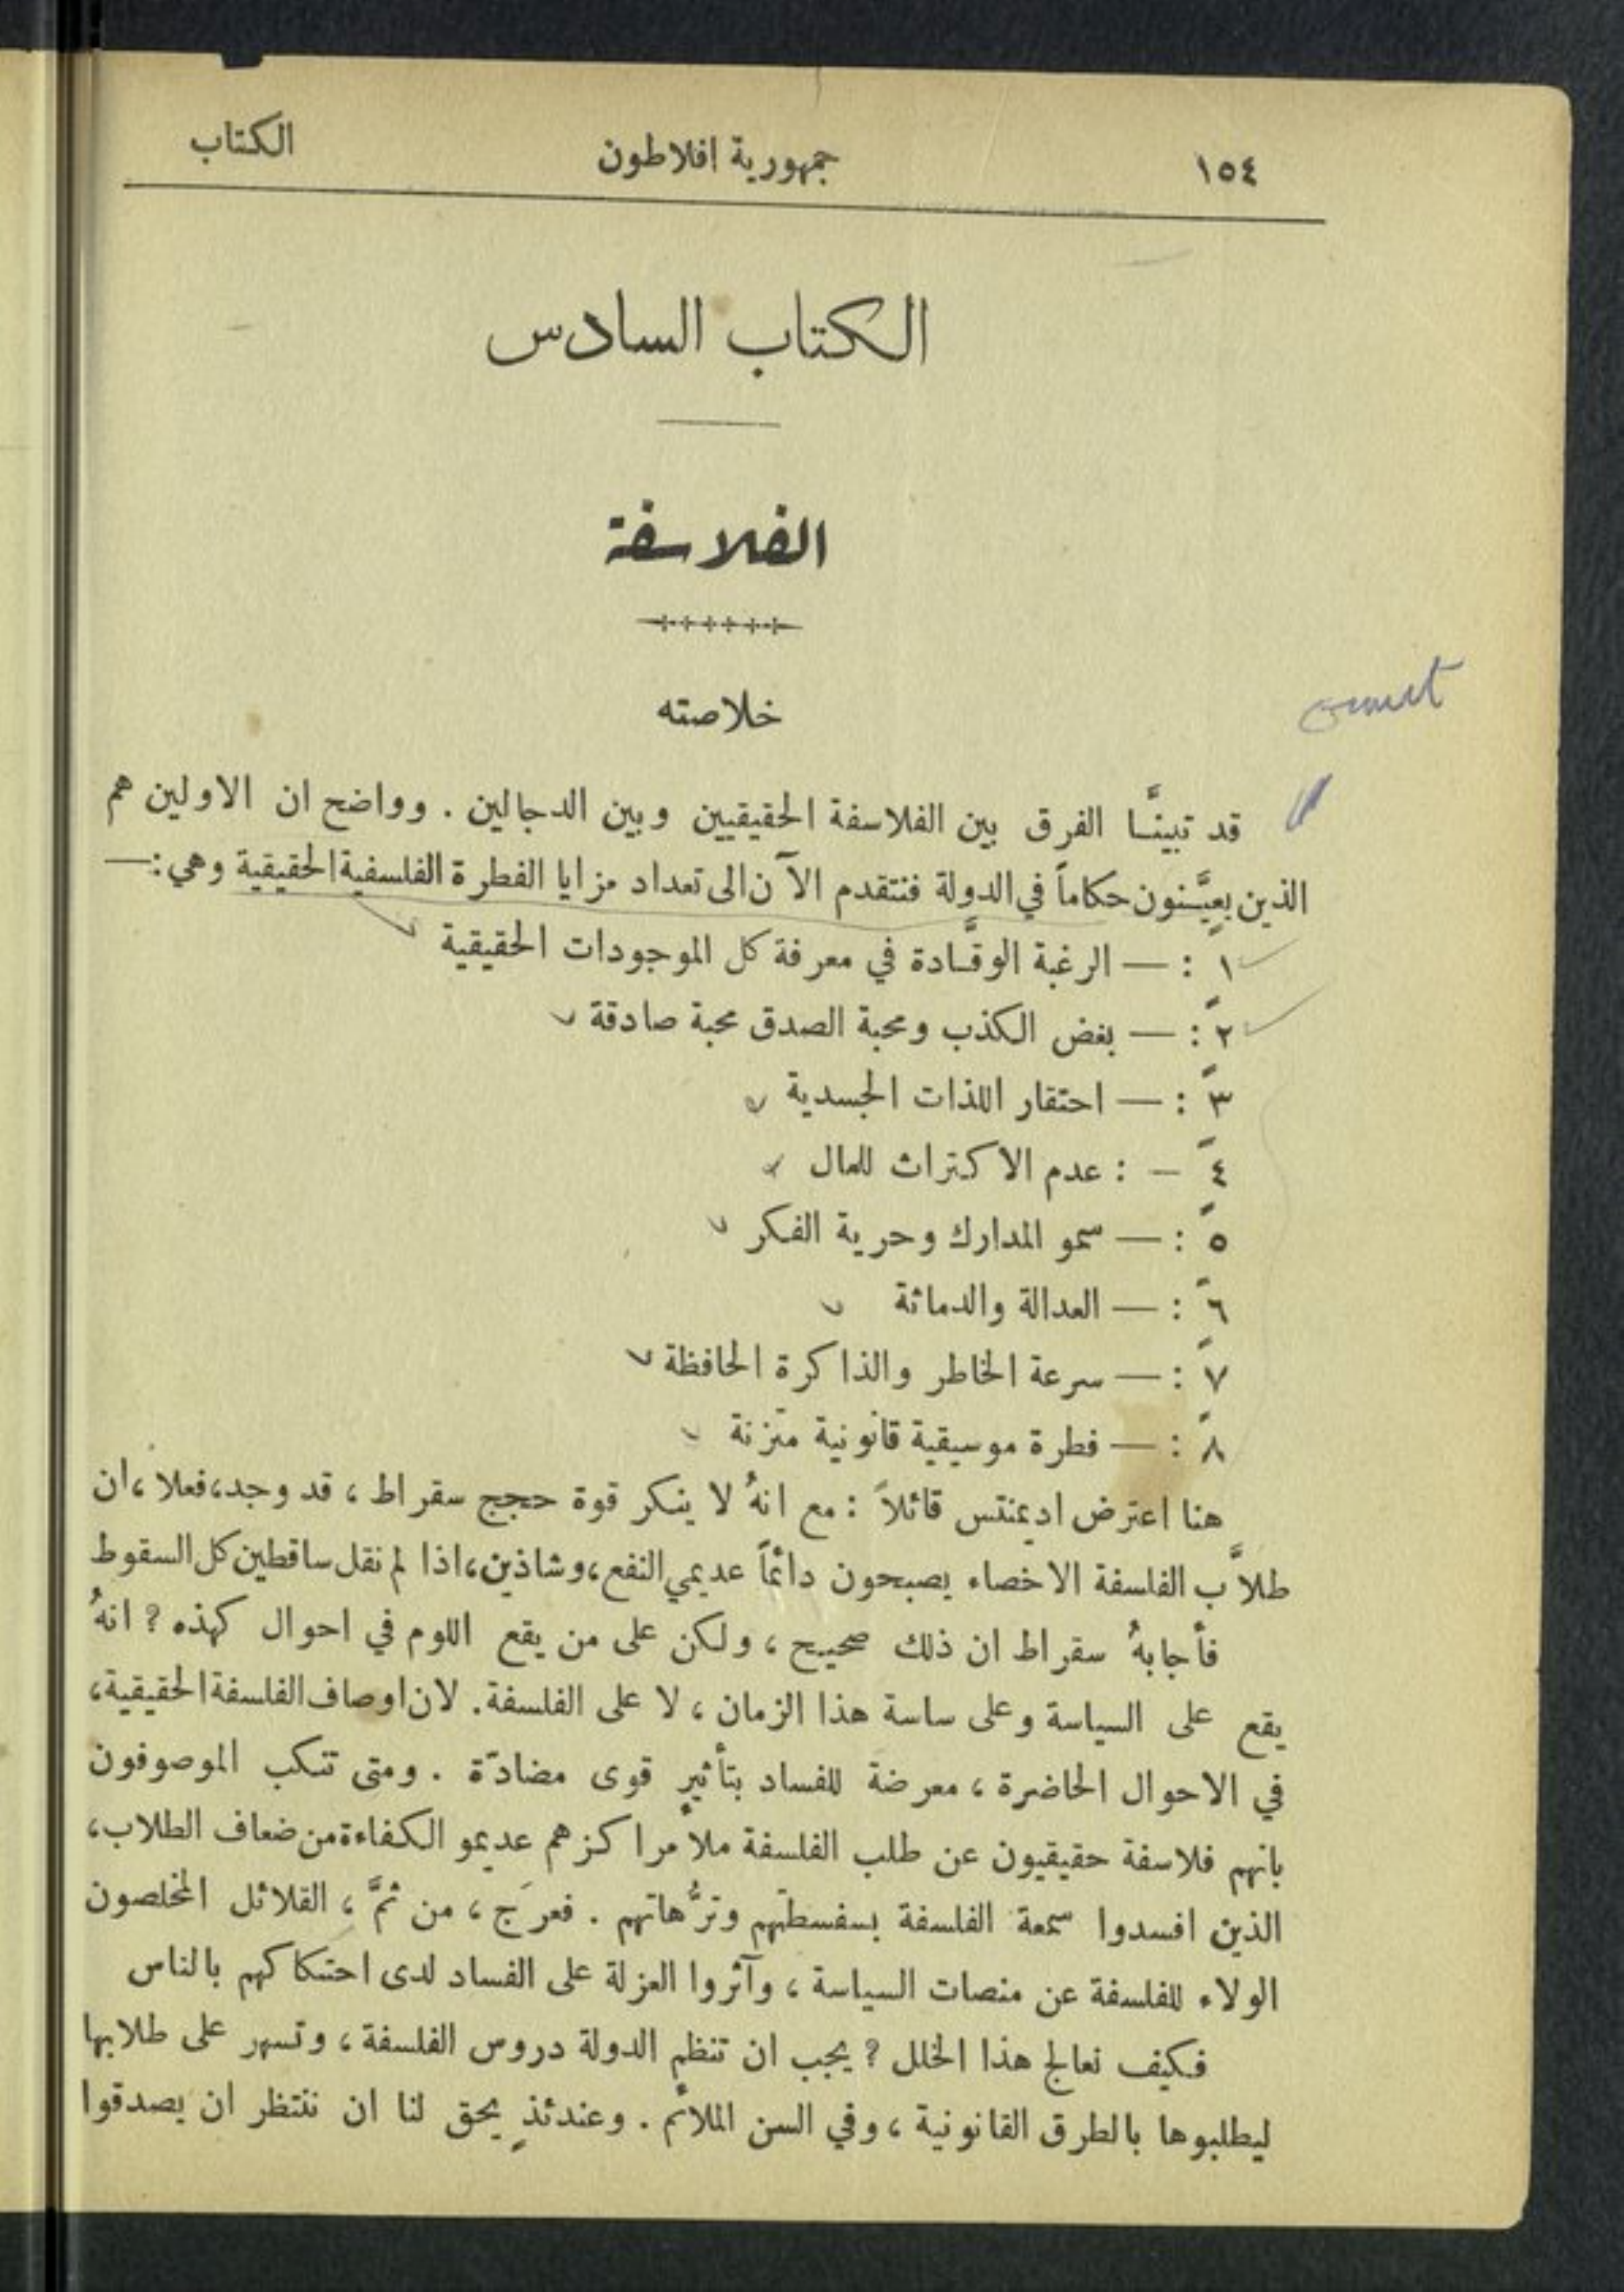 ١٥٤ جمهورية افلاطون الكتاب
الكتاب السادس
الفلاسفة
خلاصته
قد تبينَّا الفرق بين الفلاسفة الحقيقيين وبين الدجالين . وواضح ان الاولين هم
الذين يعيَّنون حكاماً في الدولة فنتقدم الآن الى تعداد مزايا الفطرة الفلسفية الحقيقية وهي :—
١ : — الرغبة الوقَّادة في معرفة كل الموجودات الحقيقية
٢ : — بغض الكذب ومحبة الصدق محبة صادقة
٣ : — احتقار اللذات الجسدية
٤ — : عدم الاكتراث للمال
٥ : — سمو المدارك وحرية الفكر
٦ : — العدالة والدماثة
٧ : — سرعة الخاطر والذاكرة الحافظة
٨ : — فطرة موسيقية قانونية متزنة
هنا اعترض اديمنتس قائلاً : مع انهُ لا ينكر قوة حجج سقراط ، قد وجد، فعلا ، ان
طلاَّب الفلسفة الاخصاء يصبحون دائماً عديمي النفع ، وشاذين ، اذا لم نقل ساقطين كل السقوط
فأجابهُ سقراط ان ذلك صحيح ، ولكن على من يقع اللوم في احوال كهذه ? انهُ
يقع على السياسة وعلى ساسة هذا الزمان ، لا على الفلسفة . لان اوصاف الفلسفة الحقيقية ،
في الاحوال الحاضرة ، معرضة للفساد بتأثيرِ قوى مضادّة . ومتى تنكب الموصوفون
بانهم فلاسفة حقيقيون عن طلب الفلسفة ملأ مراكزهم عديمو الكفاءة من ضعاف الطلاب ،
الذين افسدوا سمعة الفلسفة بسفسطتهم وترَّهاتهم . فعرَج ، من ثمَّ ، القلائل المخلصون
الولاء للفلسفة عن منصات السياسة ، وآثروا العزلة على الفساد لدى احتكاكهم بالناس
فكيف نعالج هذا الخلل ? يجب ان تنظم الدولة دروس الفلسفة ، وتسهر على طلابها
ليطلبوها بالطرق القانونية ، وفي السن الملائم . وعندئذٍ يحق لنا ان ننتظر ان يصدقوا